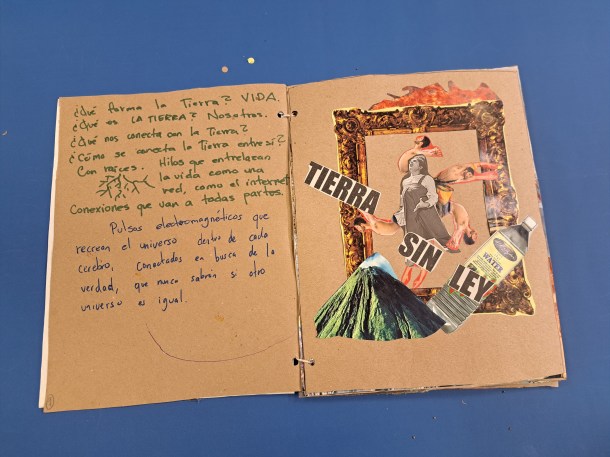 ¿Qué forma la Tierra? VIDA.
¿Qué es LA TIERRA? Nosotros.
¿Qué nos conecta con la Tierra?
¿Cómo se conecta la Tierra entre sí?
Con raíces. Hilos que entrelazan
la vida como una
red, como el internet.
Conexiones que van a todas partes.
Pulsos electromagnéticos que
recrean el universo dentro de cada
cerebro, Conectados en busca de la
verdad, que nunca sabrán si otro
universo es igual.
TIERRA
SIN
LEY
WATER